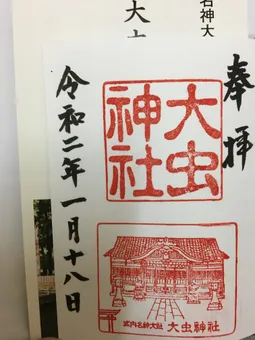 名神大
大虫
奉拝
大虫
神社
令和二年一月十八日
式内名神大社 大虫神社